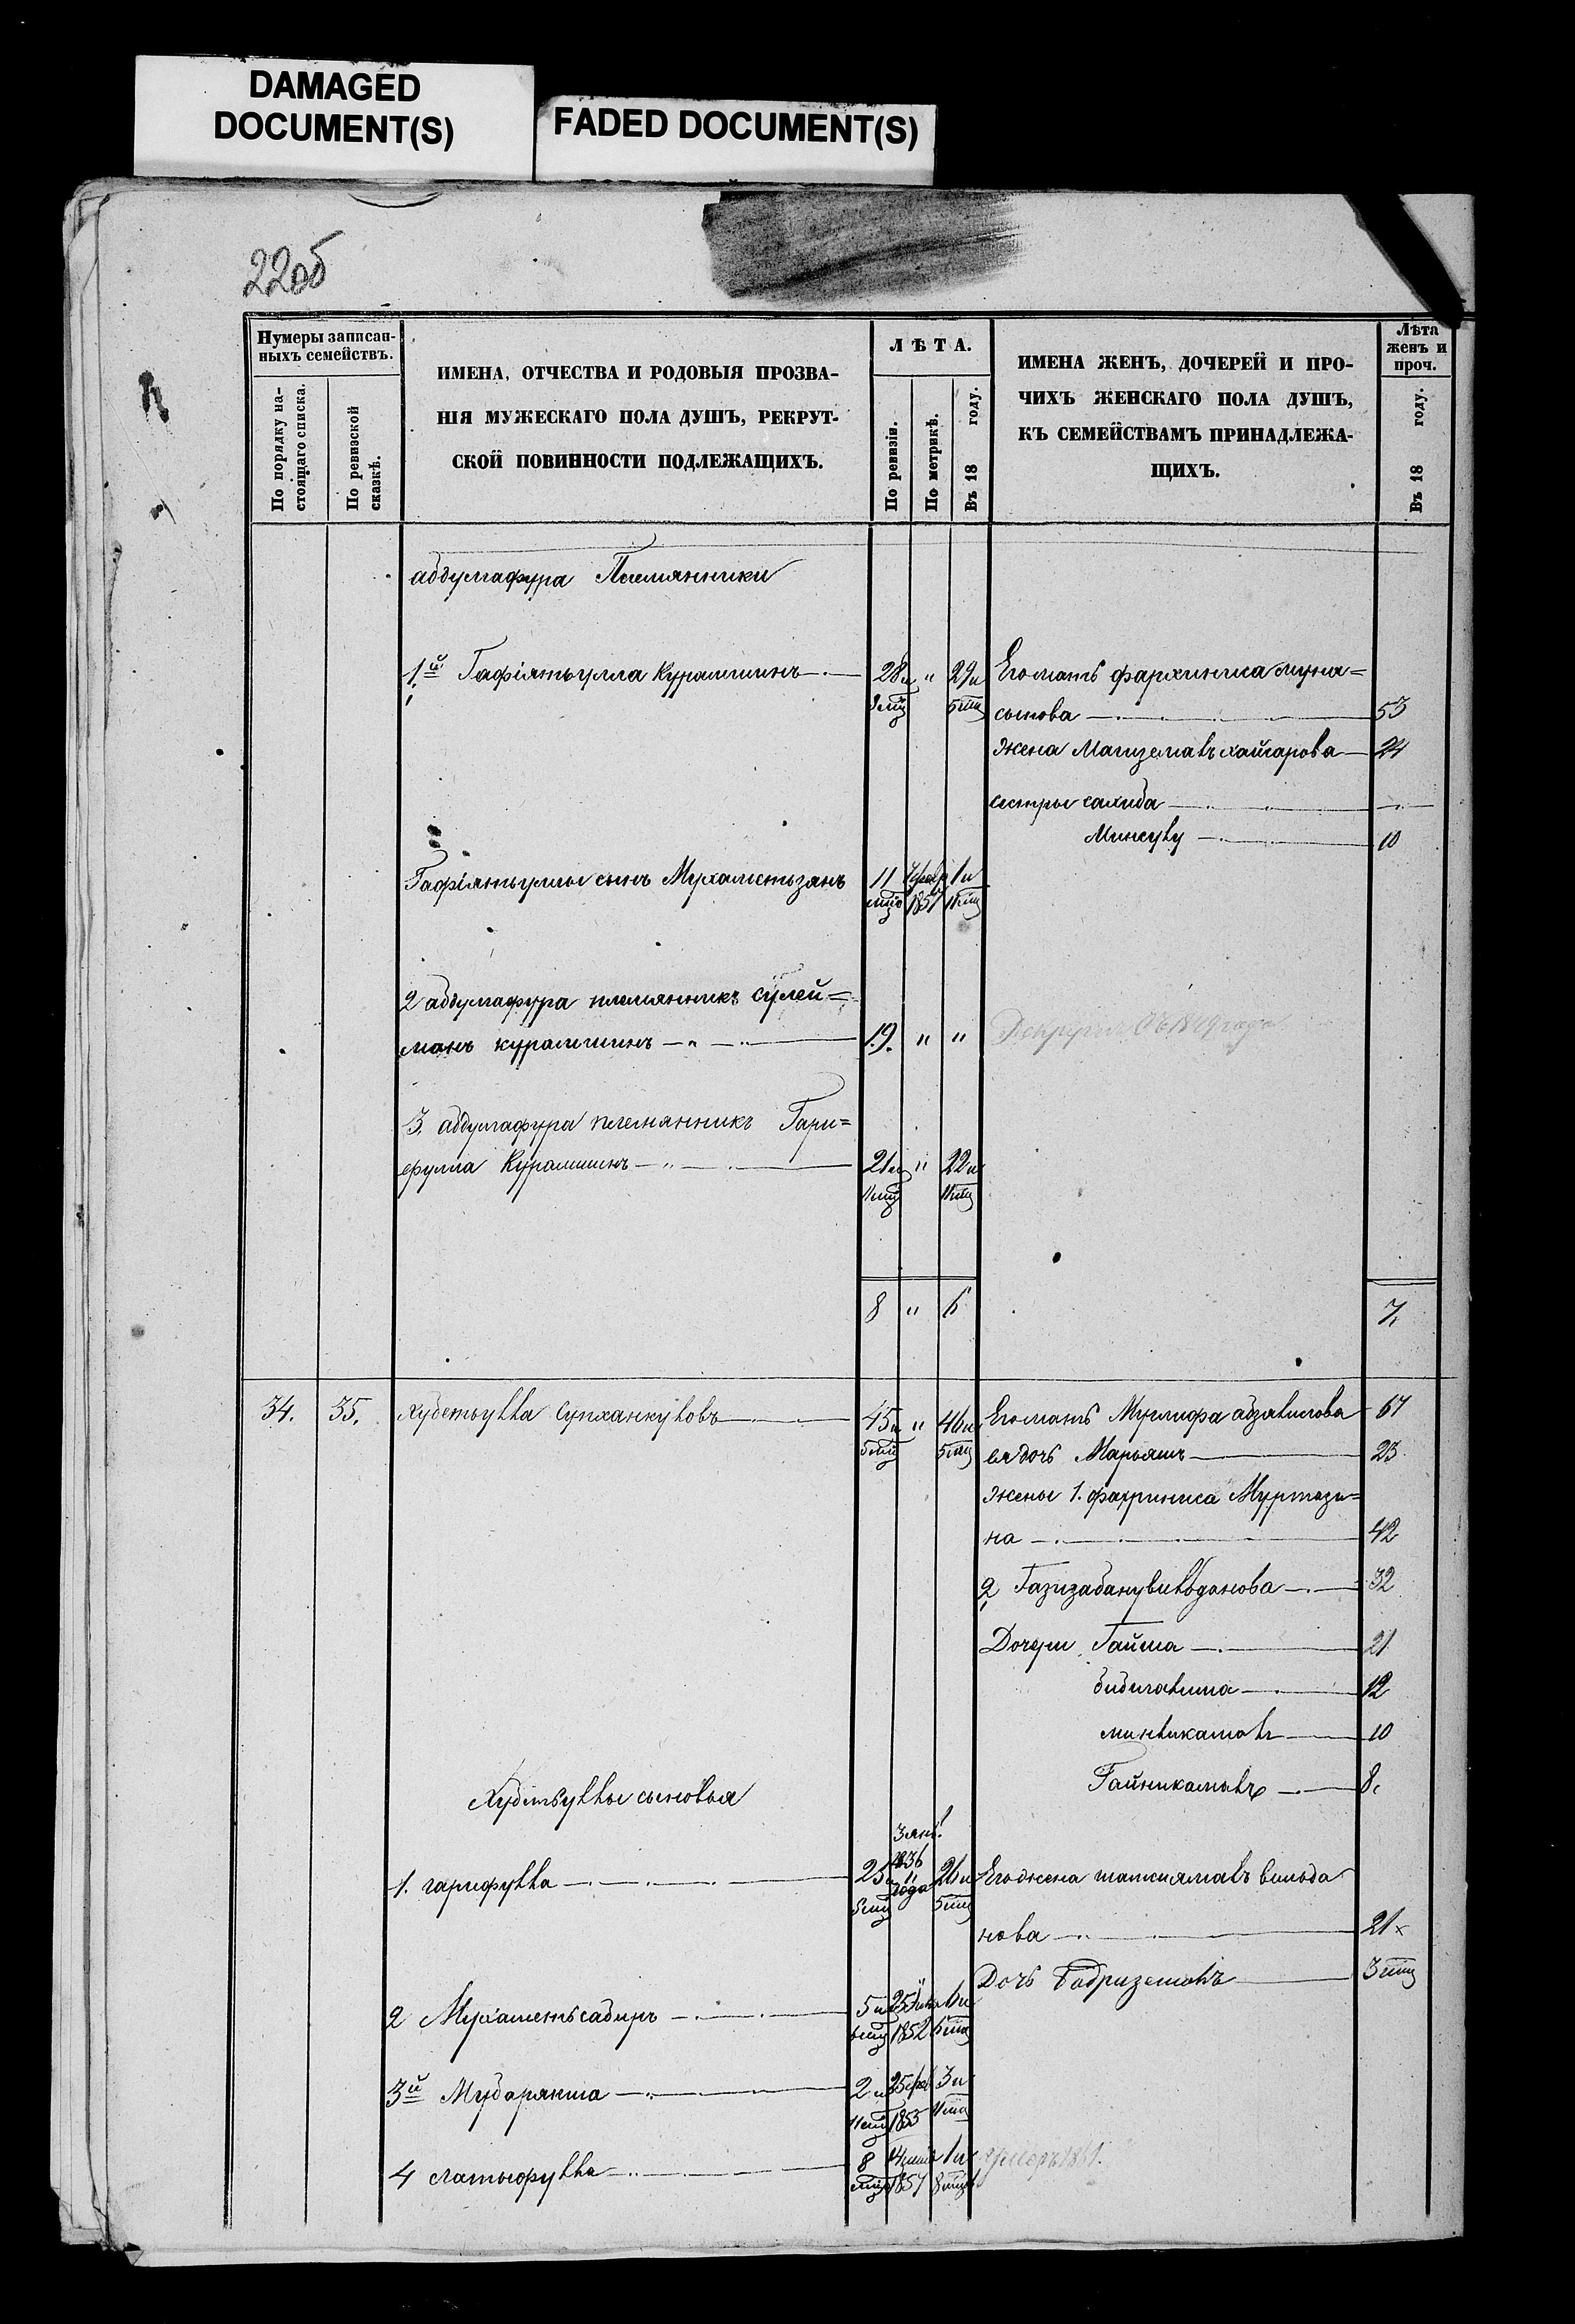 DAMAGED
DOCUMENT(S)
FADED DOCUMENT(S)
22об
Нумеры записан-
ныхъ семействъ.
По порядку на-
стоящаго списка.
По ревизской
сказкѣ.
ИМЕНА, ОТЧЕСТВА И РОДОВЫЯ ПРОЗВА-
НІЯ МУЖЕСКАГО ПОЛА ДУШЪ, РЕКРУТ-
СКОЙ ПОВИННОСТИ ПОДЛЕЖАЩИХЪ.
ЛѢТА.
По ревизіи.
По метрикѣ.
Въ 18 году.
ИМЕНА ЖЕНЪ, ДОЧЕРЕЙ И ПРО-
ЧИХЪ ЖЕНСКАГО ПОЛА ДУШЪ,
КЪ СЕМЕЙСТВАМЪ ПРИНАДЛЕЖА-
ЩИХЪ.
Лѣта
женъ и
проч.
Въ 18 году.
абдулгафура Племянники
1й Гафіятьулла Курамшинъ 28и " 29и Его мать фархиниса муна=
сыпова 53
Жена Магизямалъ хайсарова 24
сестры сахиба
Минсулу 10
Гафіятьуллы сынъ Мухаметьзянъ 11 1857 1и
2 абдулгафура племянникъ сулей=
манъ курамшинъ 19. " "
3. абдулгафура племянникъ Гари=
фулла Курамшинъ 21и " 22и
8 " 6 7,
34. 35. Худетьулла Супханкуловъ 45и " 46и Его мать Муглифа абзялилова 67
ея дочь Марьямъ 23
Жены 1. фахриниса Муртази=
на 42
2 Газизабану вильданова 32
Дочери Гайша 21
бибигалима 12
минликамалъ 10
Гайникамалъ 8.
Худетьуллы сыновья
1. гарифулла 25 3 янв. 1836 года 26и Его жена шамсиямалъ вильда
нова 21
Дочь Бадризямалъ 3
2 Мухаметьсабиръ 5и 1852 6и
3й Мубаракша 2и 1855 3и
4 латыфулла 8 1857 1и умеръ 1861.